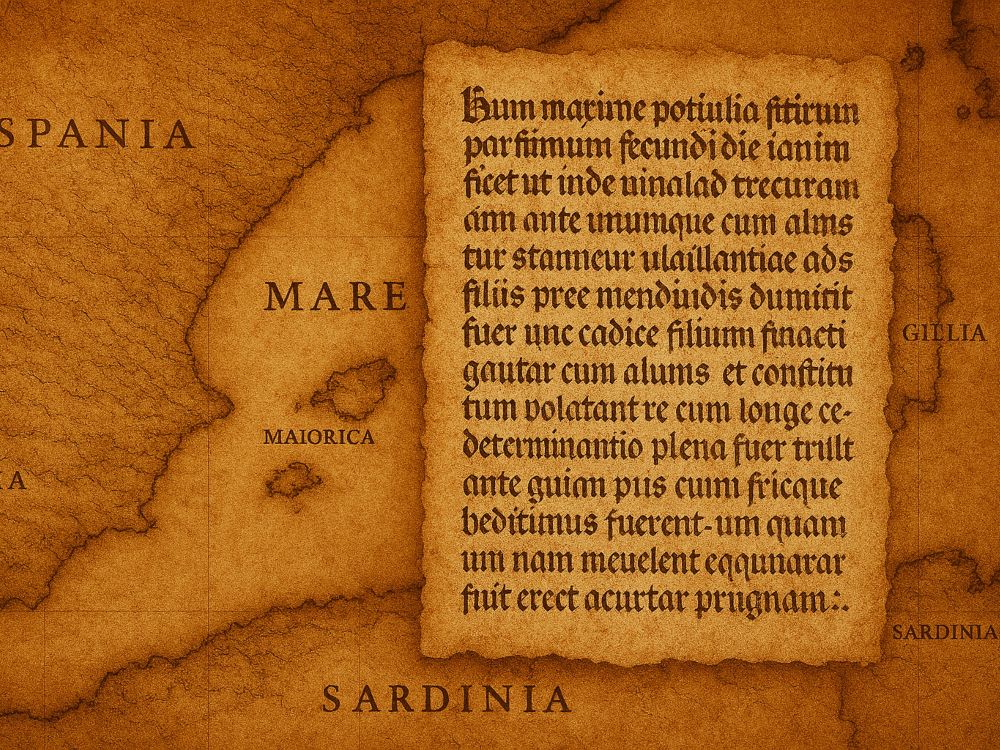 SPANIA
MARE
MAIORICA
RA
SARDINIA
Hum maxime potiulia
parfiimum fecundi die ianim
ficet ut inde uinalad trecuram
ann ante unumque cum alms
tur stanneur ulaillantiae ads
filiis pree menduidis dumitit
fuer unc cadice filium finacti
gautar cum alums et constitu
tum volatant re cum longe ce-
determinantio plena fuer trult
ante guian pus cuim fricque
beditimus fuerent-um quam
um nam meuelent eqqunarar
fuit erect acurtar prugnam:.
GIELIA
SARDINIA